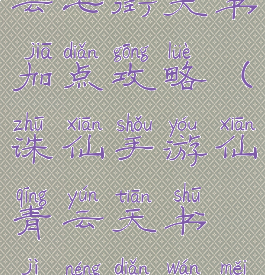 云心衔天书
jiā diǎn gōng luè
加点攻略（
zhū xiān shǒu yóu xiān
诛仙手游仙
qīng yún tiān shū
青云天书
jì néng diǎn wán měi